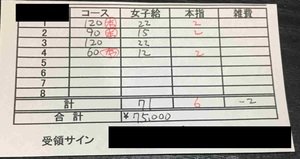 コース 女子給 本指 雑費
1 120 22 2
2 90 15 2
3 120 22
4 60 12 2
5
6
7
8
計 71 6 -2
合計 ¥75,000
受領サイン